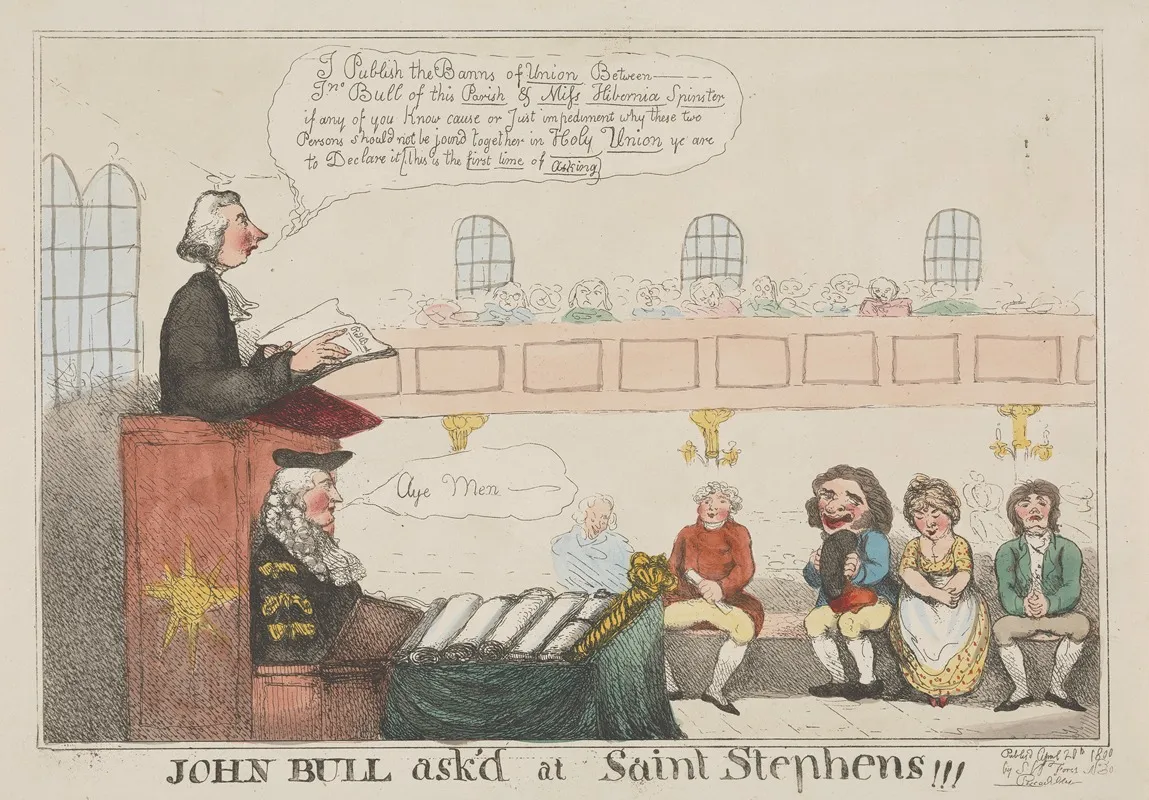 I Publish the Banns of Union Between
Jno Bull of this Parish & Miss Hibernia Spinster
if any of you Know cause or Just impediment why these two
Persons should not be joind together in Holy Union ye are
to Declare it, This is the first time of asking
Aye Men
JOHN BULL ask'd at Saint Stephens!!!
Publsd April 1800
by S W Fores No 50
Piccadilly